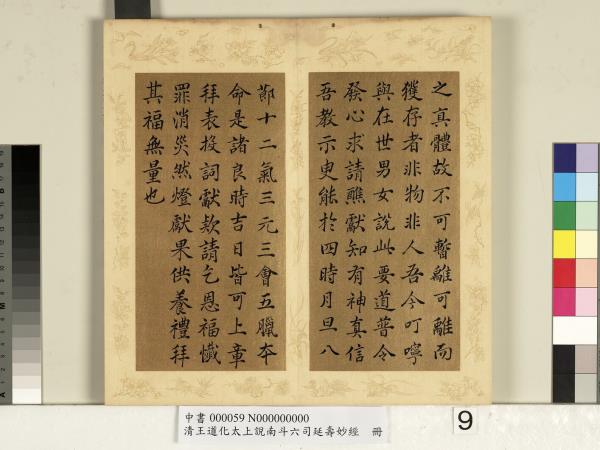 之真體故不可暫離可離而
獲存者非物非人吾今叮嚀
與在世男女說此要道普令
發心求請醮獻知有神真信
吾教示更能於四時月旦八
節十二氣三元三會五臘本
命是諸良時吉日皆可上章
拜表投詞獻款請乞恩福懺
罪消災然燈獻果供養禮拜
其福無量也
中書 000059 N000000000
清王道化太上說南斗六司延壽妙經 冊
9